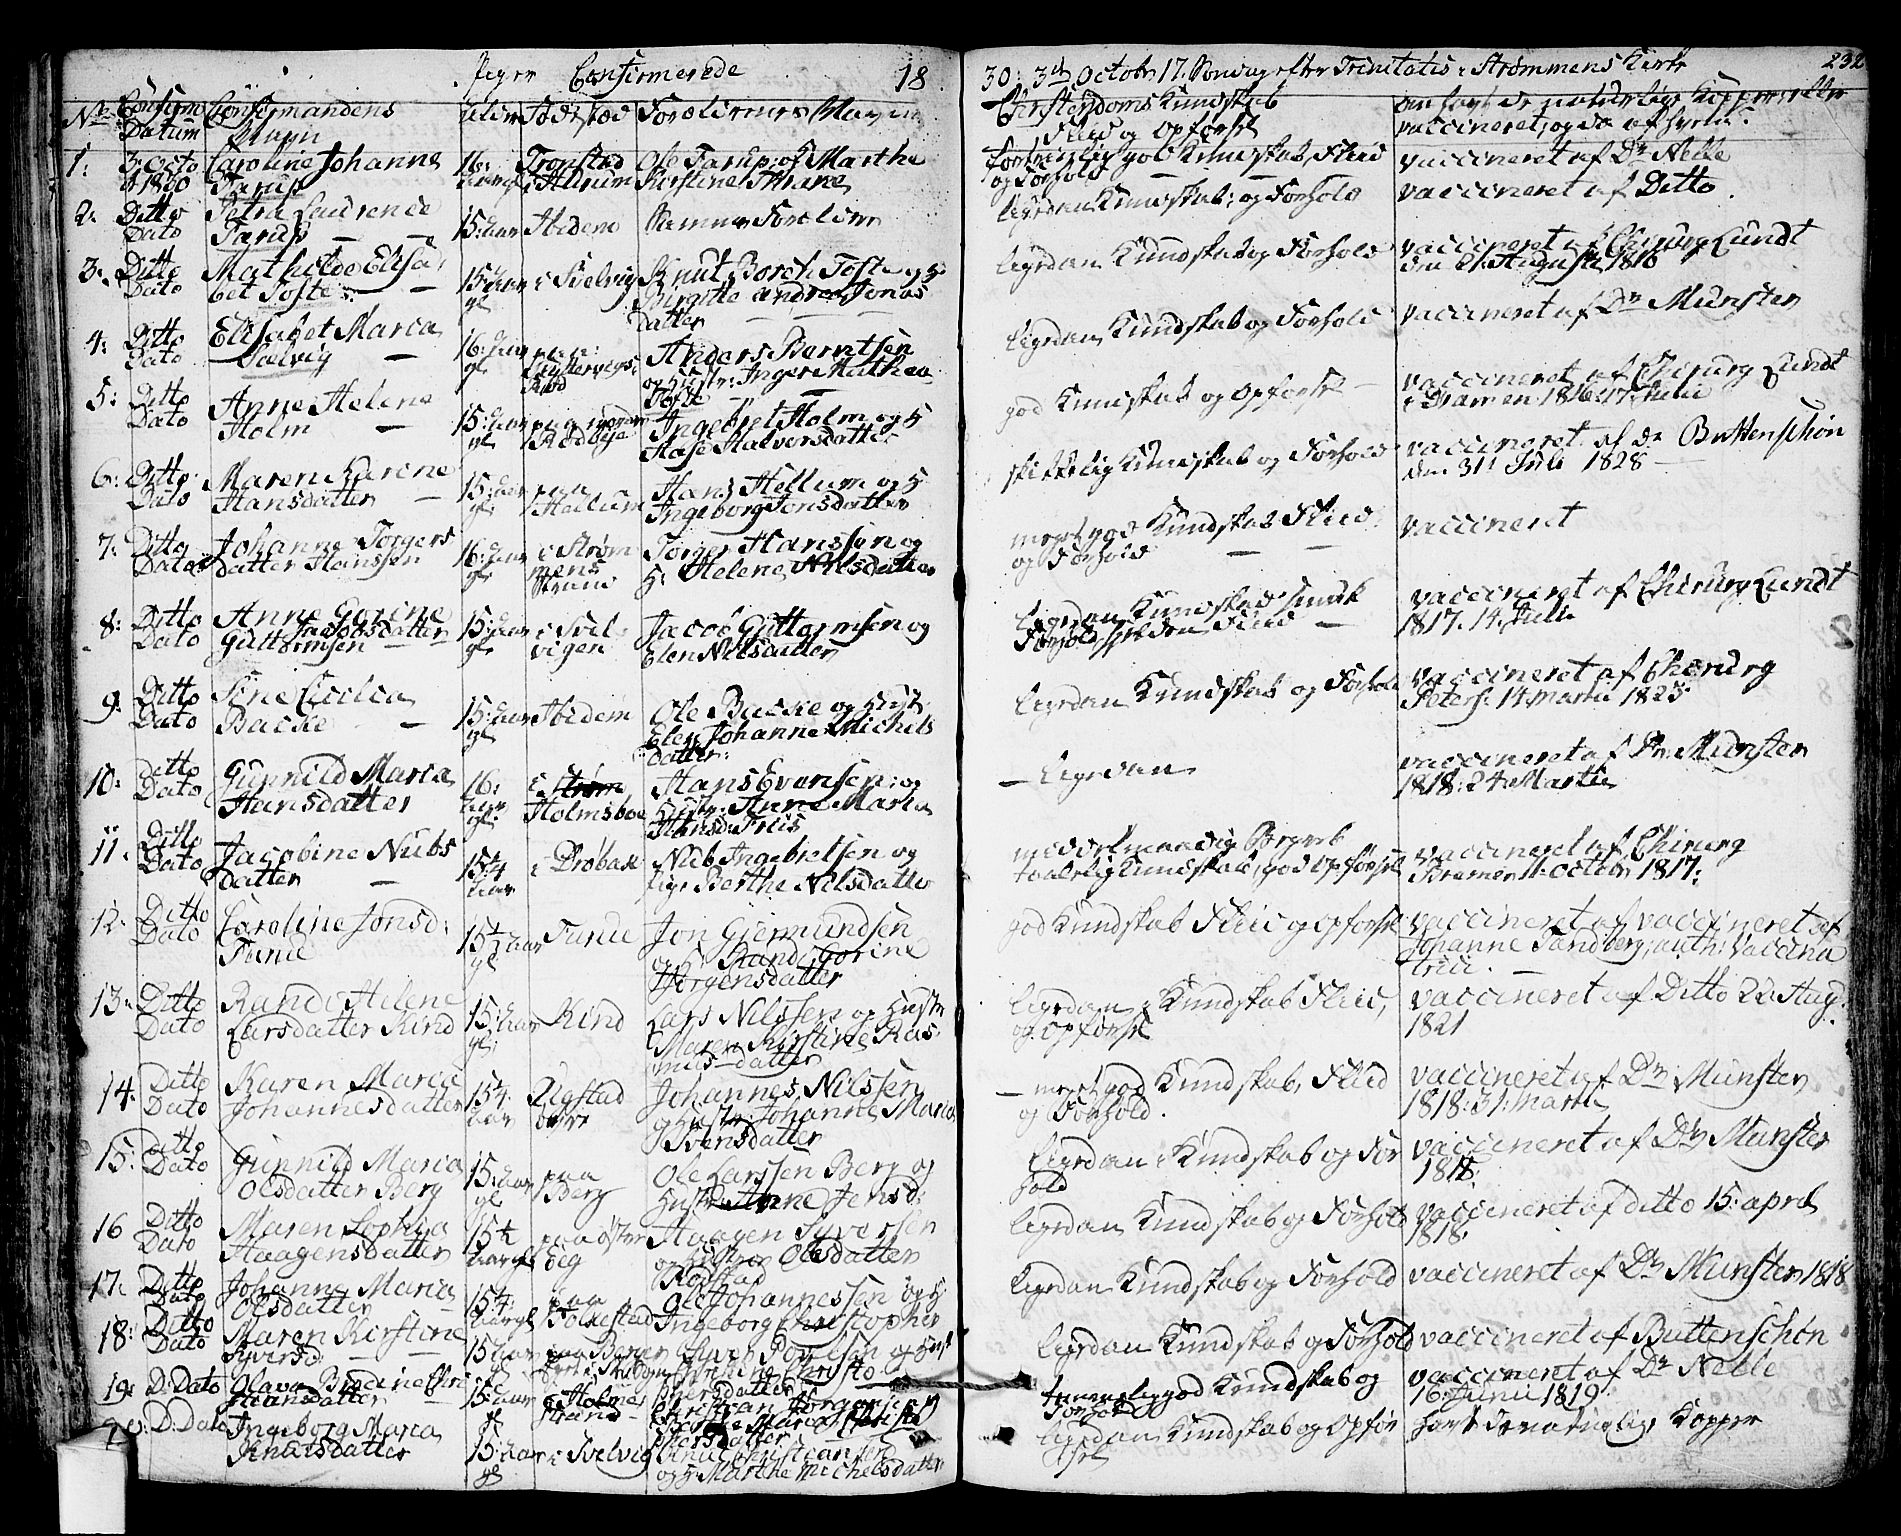 Piger Confirmerede 18
30: 3d Octobr 17. Søndag efter Trinitatis i Strømmens Kirke
232
No Confirm Datum
Confirmandens Navn
Alder
Fødested
Forældrenes Navn
Christendoms Kundskab
Flied og Opførsel
om havt de naturlige Kopper eller
vaccineret, og da af hvem.
1: 3die Octo 1830 Caroline Johanne Tarup 16: Tronstad i Hurum Ole Tarup, og Marthe Kirstine Thrane
Fortrinlig god Kundskab, Flied og Forhold
vaccineret af Dr Nelle
2: Ditto Dato Petra Laurence Tarup 15: aar Ibidem Samme Forældre
ligedan Kundskab, og Forhold
vaccineret af Ditto
3: Ditto Dato Mathilde Elisabet Tofte 15: aar gl i Svelvig Knut Borch Tofte og H: Birgitte Andrea Jonasdatter
ligedan Kundskab og Forhold
vaccineret af Chirurg Lundt den 21 August 1816
4: Ditto Dato Elisabet Maria Sælvig 16: aar gl paa Anders Berntsen og Hustr: Inger Mathea Tofte
ligedan Kundskab og Forhold
vaccineret af Dr Munster
5: Ditto Dato Anne Helene Holm 15: aar gl paa nordre Rødbye Ingebret Holm og H Aase Halvorsdatter
god Kundskab og Opførsel
vaccineret af Chirurg Lundt i Dramen 1816: 17 Julie
6: Ditto Dato Maren Karine Hansdatter 15: aar gl paa Hellum Hans Hellum og H Ingeborg Jonsdatter
skikkelig Kundskab og Forhold
vaccineret af dr Buttenschøn den 31 Juli 1828
7: Ditto Dato Johanne Torgersdatter Hanssen 16: aar gl i Strømmens Strand Torger Hanssen og H: Helene Nilsdatter
meget god Kundskab Flied og Forhold
vaccineret
8: Ditto Dato Anne Gorine Jacobsdatter Guttormsen 15: aar gl i Svelvigen Jacob Guttormsen og Elen Nilsdatter
ligedan Kundskab smuk Forhold, Flied
vaccineret af Chirurg Lundt 1817. 14 Julii
9: Ditto Dato Sine Cicilia Backe 15: aar gl Ibidem Ole Backe og Hust Elen Johanne Michelsdatter
ligedan Kundskab og Forhold
vaccineret af Chirurg Peters: 14 marti 1823
10: Ditto Dato Gunnild Maria Hansdatter 16: aar gl: i Holmsboe Hans Evensen: og Hustr: Anne Maria Hansd: Friis
ligedan
vaccineret af Dr Munster 1818: 24 Martii
11: Ditto Dato Jacobine Nilsdatter 15¼ aar i Drøbak Nils Ingebretsen og Pige Berthe Nilsdatter
middelmaadig Begreb taalelig Kundskab, god Opførsel
vaccineret af Chirurg Bremer 11 octobr 1817:
12: Ditto Dato Caroline Jonsd: Tanie 15½ aar gl Tanie Jon Giermundsen og H: Randi Gorine Horgensdatter
god Kundskab Flied og Opførsel
vaccineret af vaccineret af Johanne Sandberg, auth: Vaccinatrice
13: Ditto Dato Randi Helene Larsdatter Kind 15: aar gl: Kind Lars Nilssen og Hustr Maren Kirstine Rasmusdatter
ligedan Kundskab Flied, og Opførsel
vaccineret af Ditto 22 Aug 1821
14: Ditto Dato Karen Maria Johannesdatter 15¼ aar Rigstad øvre Johannes Nilssen og Hustr: Johanne Maria Svensdatter
meget god Kundskab, Flied og Forhold.
vaccineret af Dr Munster 1818: 31: martii
15: ditto Dato Gunnild Maria Olsdatter Berg 15: aar gl paa Berg Ole Larssen Berg og Hustr Anne Jensd:
ligedan Kundskab og Forhold
vaccineret af Dr Munster 1818:
16 Ditto Dato Maren Sophia Haagensdatter 15½ aar gl paa østre Haagen Syversen Olsdatter Rostad
ligedan Kundskab og Forhold
vaccineret af ditto 15: april 1818:
17: Ditto Dato Johanne Maria Olsdatter 15¼ aar gl paa Bolkestad Ole Johannessen og H: Ingeborg Christopher
ligedan Kundskab og Forhold
vaccineret af Dr Munster 1818
18: Ditto Dato Maren Kirstine Syversd 15: aar gl Syver og Hust Christophersdatter
ligedan Kundskab og Forhold
vaccineret af Buttenschøn
19: D. Dato Olava Hansdatter 15: aar gl i Holmestrand Christian Maria
god Kundskab og Forhold
vaccineret af Dr Nelle 16 Junii 1819
20: D: Dato Ingeborg Maria Knutsdatter 15: aar gl i Svelvig Knut Christiansen og H: Marthe Michelsdatter
ligedan Kundskab og Opførsel
havt de naturlige Kopper